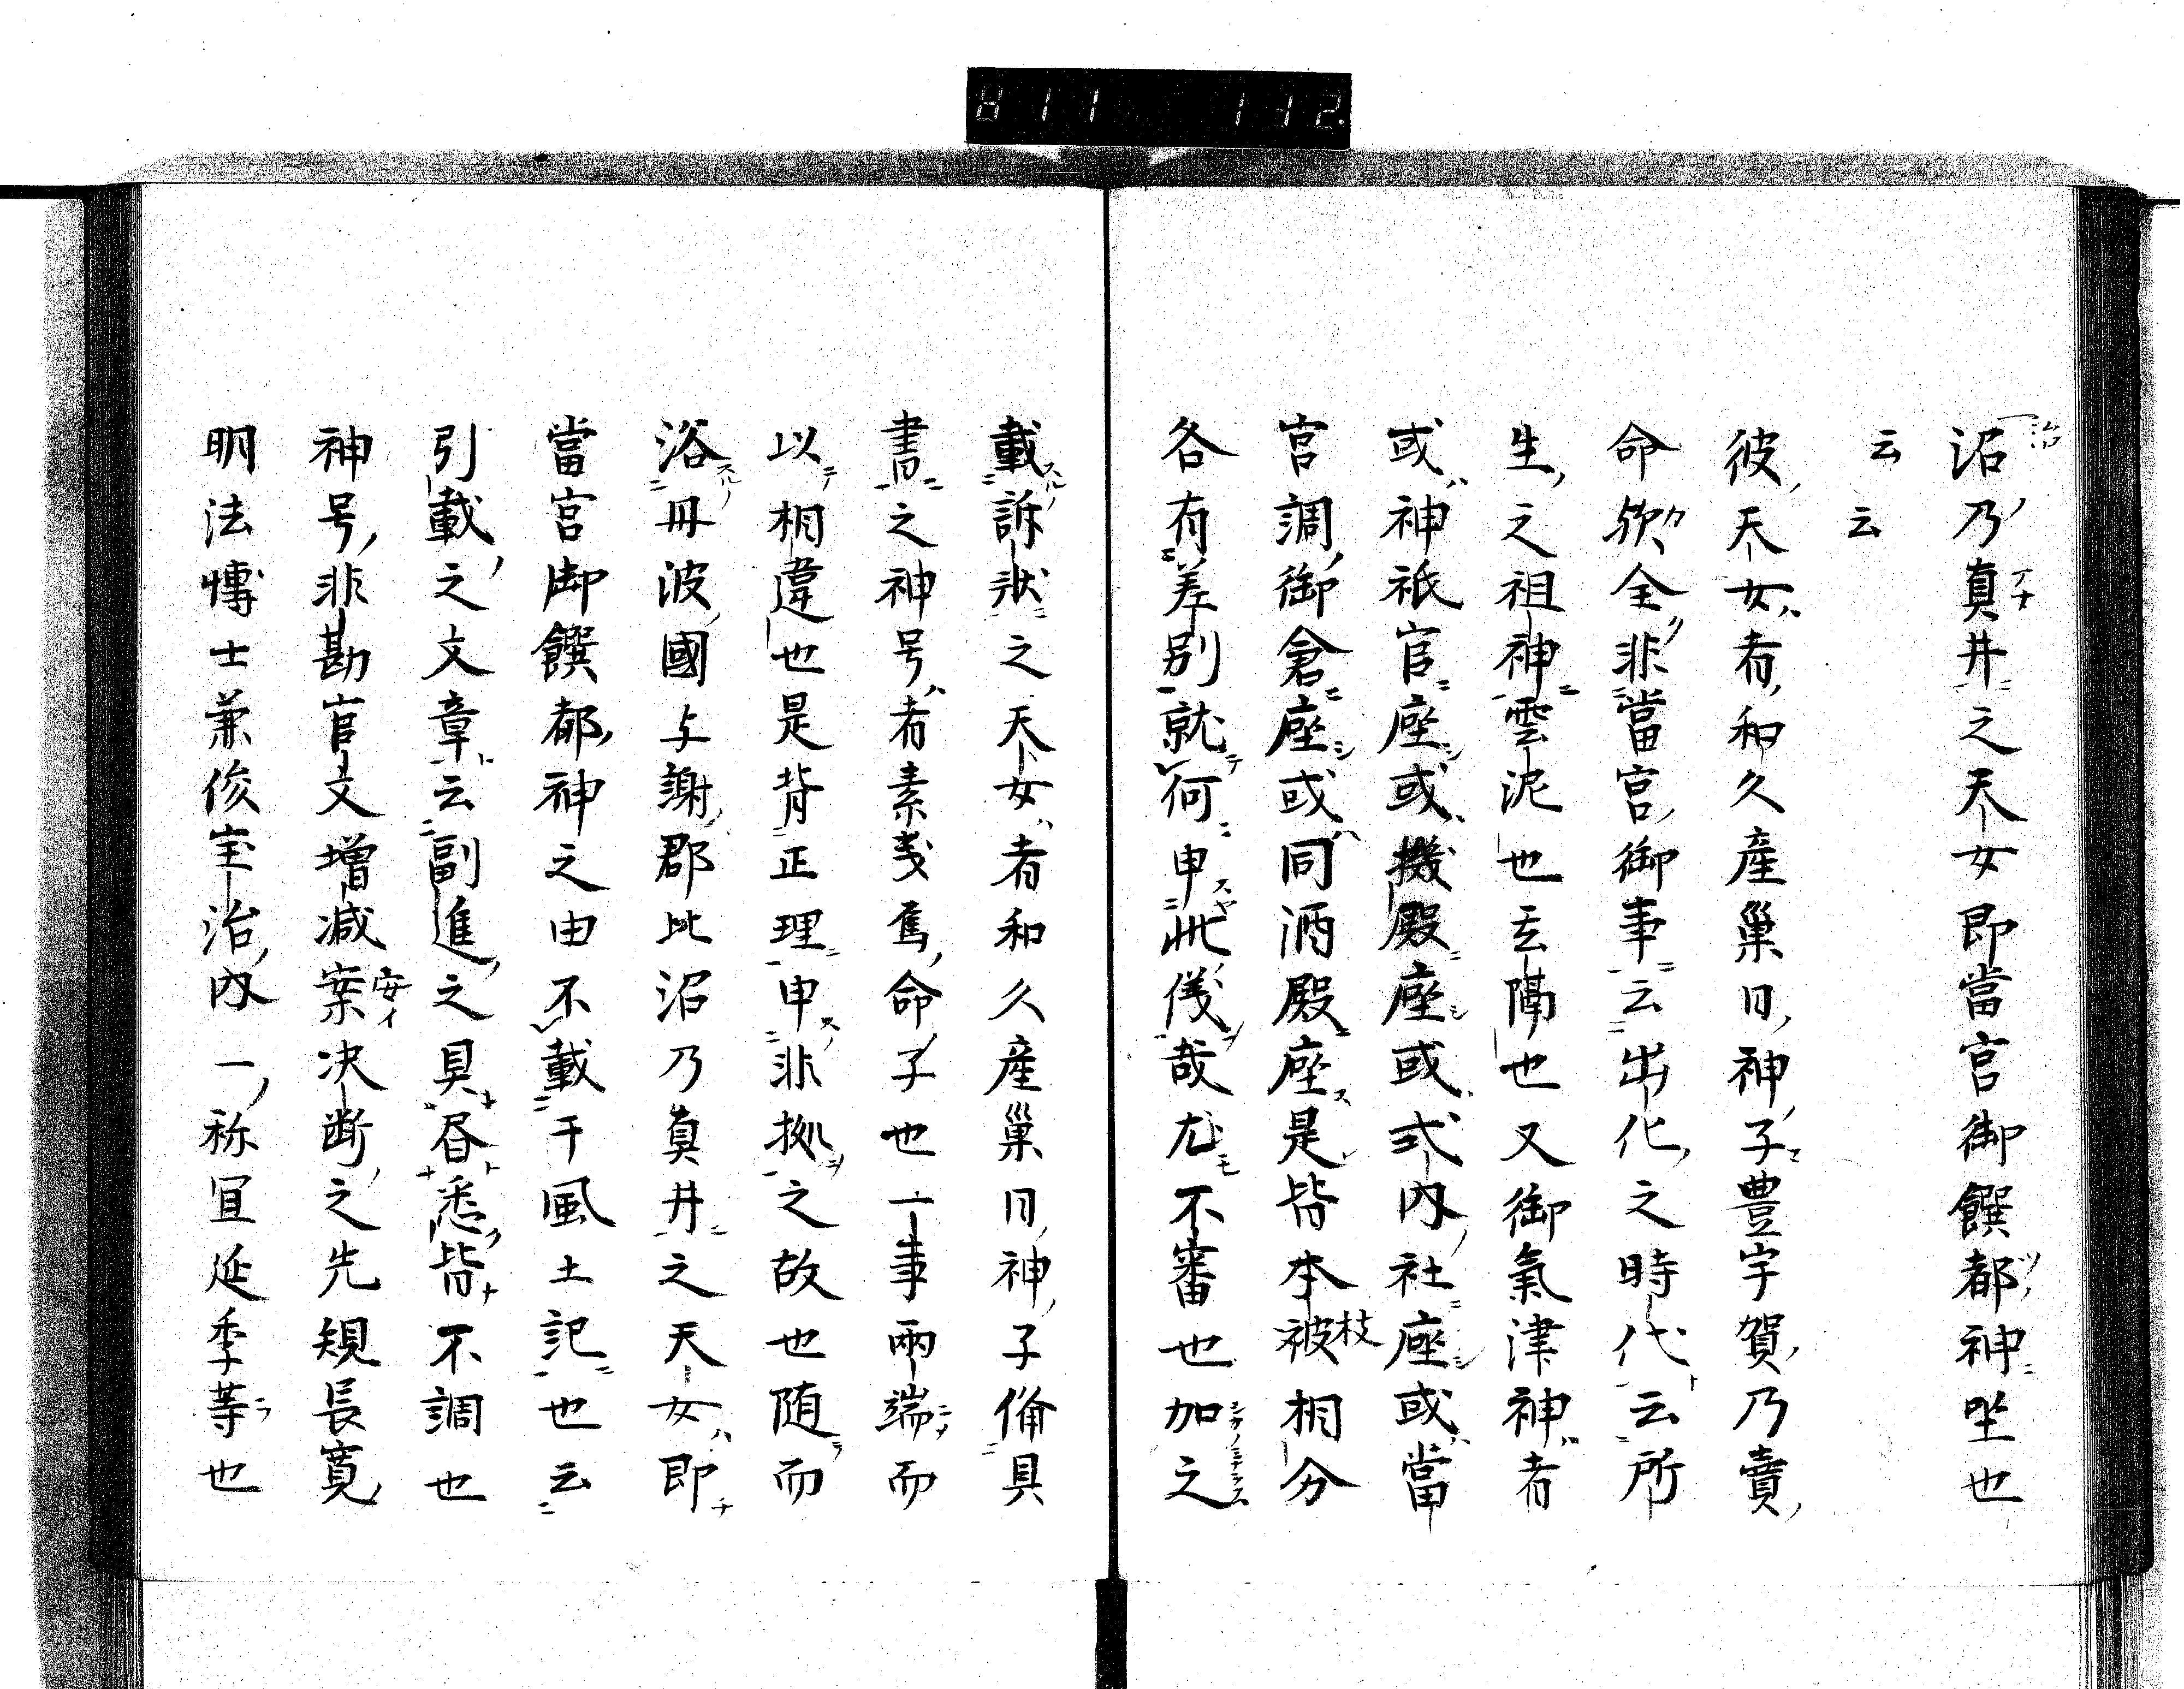 沼乃真井之天女即當宮御饌都神坐也
云云
彼天女者和久産巢日神子豊宇賀乃賣
命欤全非當宮御事云出化之時代云所
生之祖神雲泥也玄隔也又御氣津神者
或神祇官座或機殿座或式内社座或當
宮調御倉座或同酒殿座是皆本被相分
各有差別就何申此儀哉尤不審也加之
載訴状之天女者和久産巢日神子俻具
書之神号者素戔烏命子也一事兩端而
以相違也是背正理申非拠之故也随而
浴丹波國与謝郡比沼乃真井之天女即
當宮御饌都神之由不載于風土記也云
引載之文章云副進之具昏悉皆不調也
神号非勘官文増减案决断之先規長寛
明法博士兼俊宝治内一祢宜延季等也